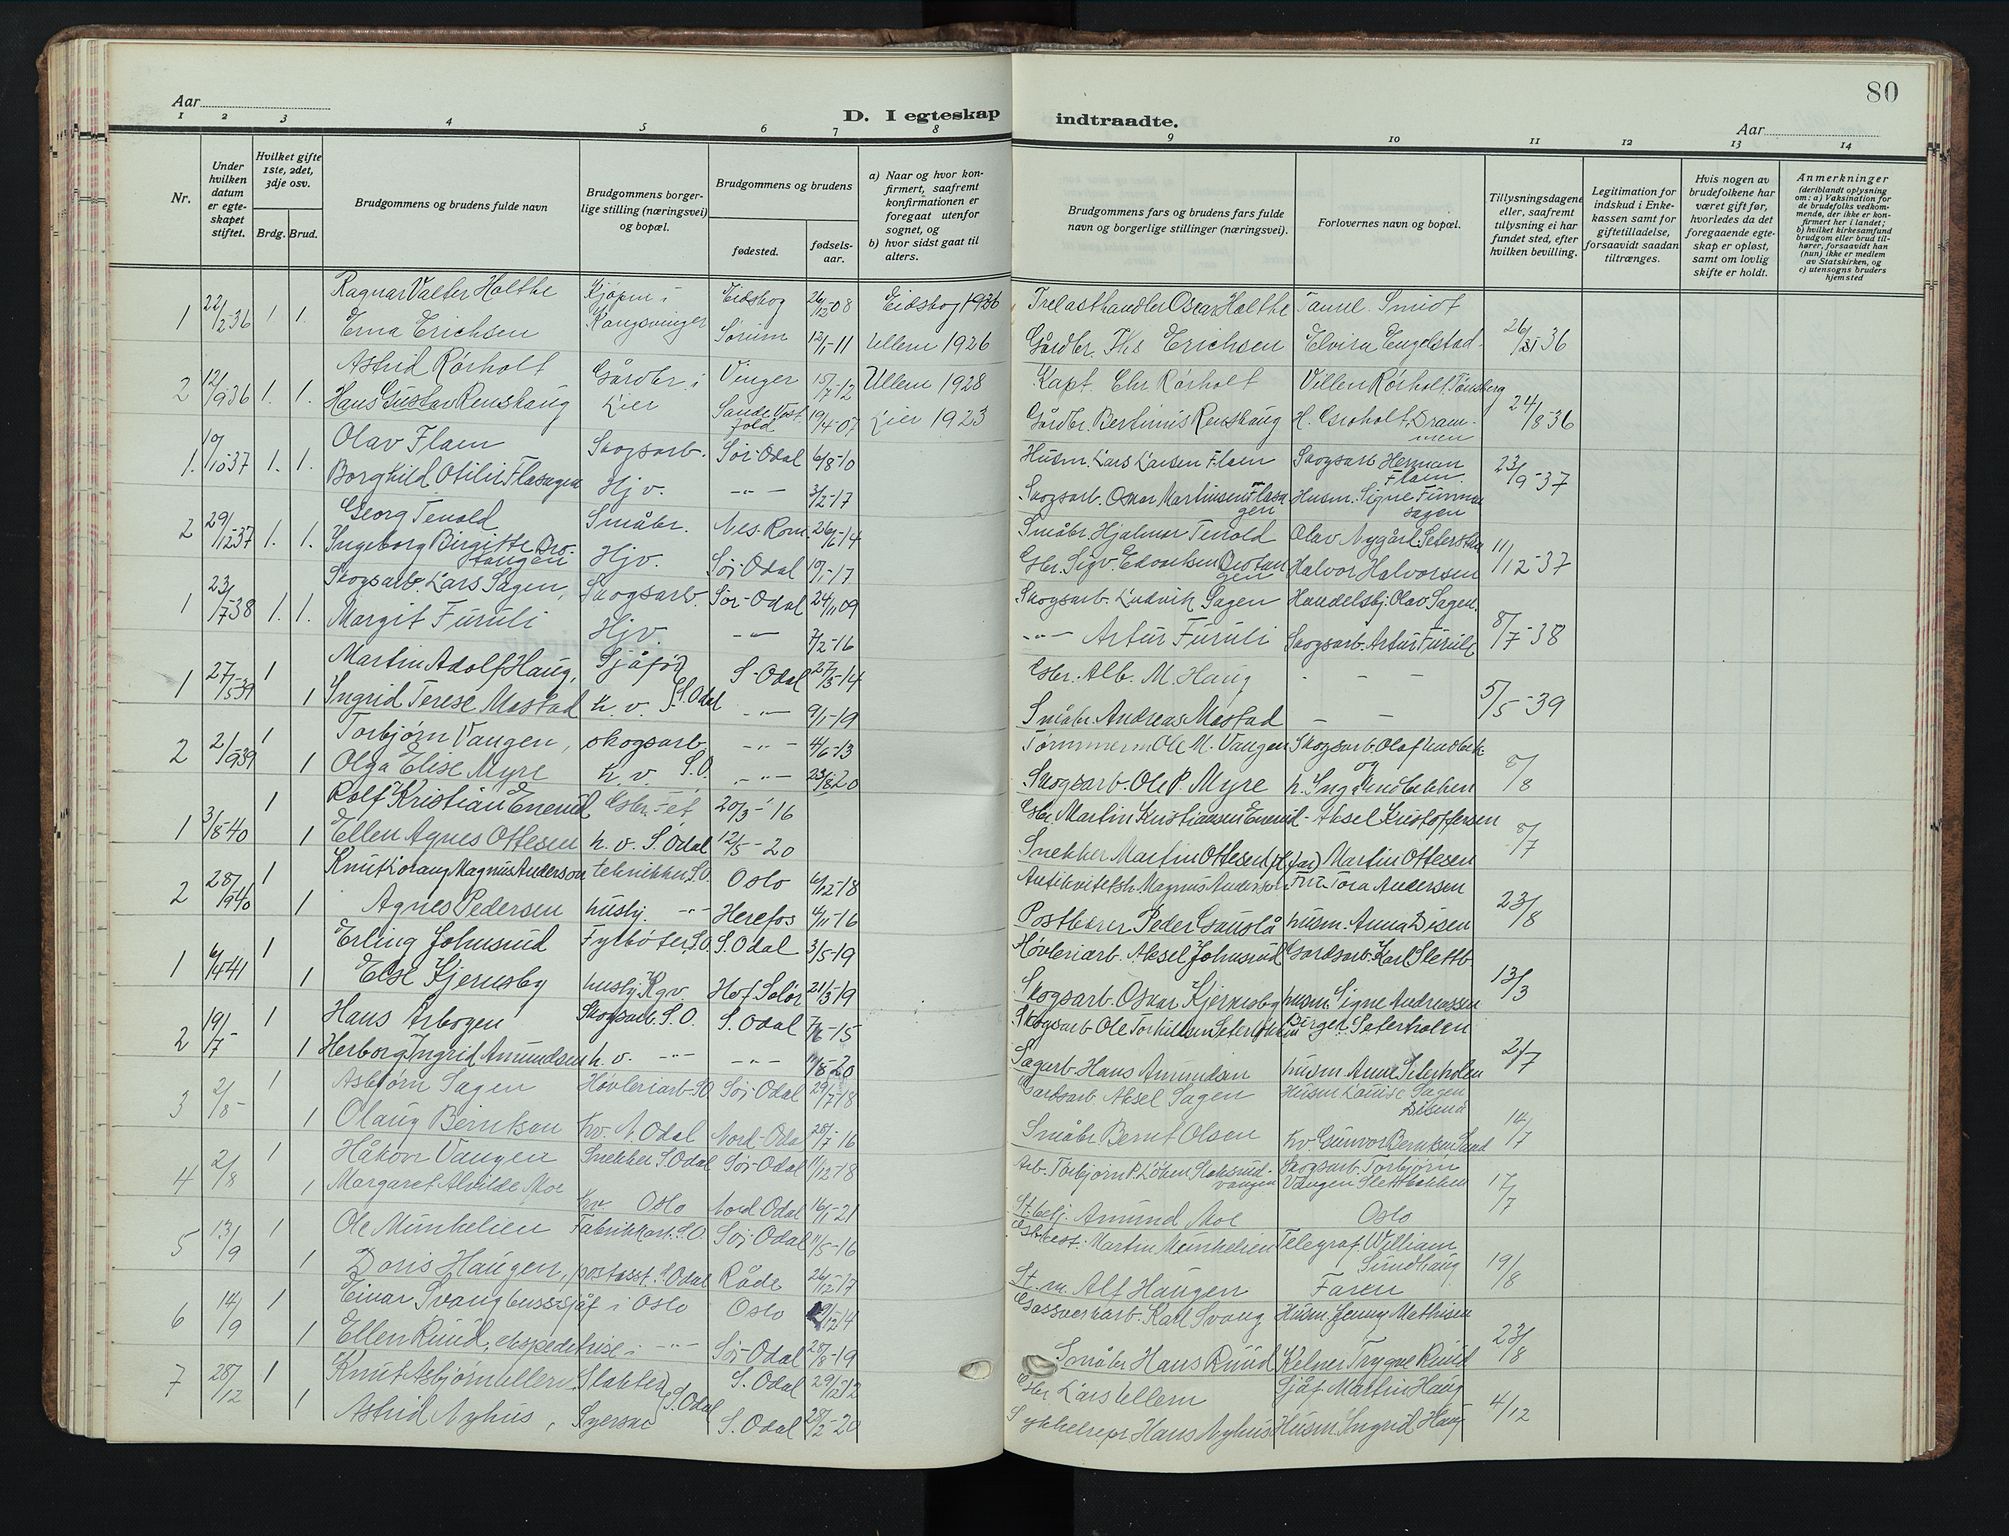 80
Aar
D. I egteskap indtraadte.
Aar
1 2 3 4 5 6 7 8 9 10 11 12 13 14
Nr.
Under hvilken datum er egteskapet stiftet.
Hvilket gifte 1ste, 2det, 3dje osv.
Brdg. Brud.
Brudgommens og brudens fulde navn
Brudgommens borgerlige stilling (næringsvei) og bopæl.
Brudgommens og brudens
fødested. fødselsaar.
a) Naar og hvor konfirmert, saafremt konfirmationen er foregaat utenfor sognet, og
b) hvor sidst gaat til alters.
Brudgommens fars og brudens fars fulde navn og borgerlige stillinger (næringsvei).
Forlovernes navn og bopæl.
Tillysningsdagene eller, saafremt tillysning ei har fundet sted, efter hvilken bevilling.
Legitimation for indskud i Enkekassen samt for giftetilladelse, forsaavidt saadan tiltrænges.
Hvis nogen av brudefolkene har været gift før, hvorledes da det foregaaende egteskap er opløst, samt om lovlig skifte er holdt.
Anmerkninger (deriblandt oplysning om: a) Vaksination for de brudefolks vedkommende, der ikke er konfirmert her i landet; b) hvilket kirkesamfund brudgom eller brud tilhører, forsaavidt han (hun) ikke er medlem av Statskirken, og c) utensogns bruders hjemsted
1 22/2-36 1. Ragnar Valter Holthe Kjøpm i Eidskog 26/12-08 Eidskog 1926 Trelasthandler Oscar Holthe Smidt
1. Erna Erichsen Kongsvinger Sørum 12/1-11 Ullern 1926 Gårdbr. Ths Erichsen Elvira Engelstad 36
Astrid Rørholt Gårdbr. i Vinger 15/7-12 Ullern 1928 Kapt Chr Rørholt Villen Rørholt, Tønsberg
2 12/9 36 1. 1. Hans Gustav Renskaug Lier Sande Vestfold 19/4-07 Lier 1923 Gårdbr. Bertinius Renskaug H. Groholt, Drammen 24/8-36
1. 10/10-37 1. Olav Flaen Skogsarb. Sør-Odal 6/8-10 Husm. Lars Larsen Flaen Skogsarb Herman Flaen. 23/9-37
1. Borghild Otilie Flasagen Hjv. -"- 3/2-17 Skogsarb. Oskar Martinsen Flasagen Husm. Signe
2 29/12 37 1. Georg Tenold Småbr. Nes. Rom. 26/6-14 Småbr. Hjalmar Tenold Olav Nygård 11/12-37
1. Ingeborg Birgitte Brostangen Hjv. Sør-Odal 19/1-17 Gbr. Sigv. Edvartsen Halvor Halvorsen
1 23/7-38 1. Skogsarb. Lars Sagen, Skogsarb. Sør-Odal 24/11 09 Skogsarb. Ludvik Sagen Handelsbj. Olav Sagen.
1. Margit Furuli Hjv. -"- 7/2-16 -"- Artur Furuli Skogsarb. Artur Furuli 8/7-38
1 27/5-39 1 Martin Adolf Haug, Sjåfør S-Odal 27/5-14 Gbr. Alb. M. Haug - - -
1 Ingrid Terese Mostad h. v. S. Odal -"- 9/1-19 Småbr. Andreas Mostad - - 5/5-39
2 2/9 39 1 Torbjørn Vangen, skogsarb -"- 4/6-13 Tømmerm Ole M. Vangen Skogsarb Olaf
1 Olga Elise Myre h. v. S.O. -"- 23/8 20 Skogsarb. Ole P. Myre h. Inga 8/8
1 3/8-40 1 Rolf Kristian Enerud Gbr. Fet 20/3-16 Gbr. Martin Kristiansen Enerud - Aksel Kristoffersen
1 Ellen Agnes Ottesen h. v. S. Odal 12/5-20 Snekker Martin Ottesen (pl. far) Martin Ottesen 8/7
2 28/9 40 1 Knut Magnus Anderson tekniker S.O. Oslo 6/12-18 Magnus Anderson Tora Andersen
1 Agnes Pedersen husbj. -"- Herefos 4/11-16 Postbærer Peder Gauslå husm. Anna Disen 23/8
1 6/4 41 1 Erling Johnsrud Fyrbøter S.O. S. Odal 3/5-19 Høvleriarb. Aksel Johnsrud Gardsarb. Karl Slettb.
1 Else Kjernsby husbj Kgv. Hof Solør 21/3-19 Skogsarb. Oskar Kjernsby husm. Signe Andreassen 13/3
2 19/7 1 Hans Arbogen Skogsarb. S.O. S. Odal 7/6-15 Skogsarb Ole Birger Seterholen
1 Herborg Ingrid Amundsen h. v. -"- -"- 11/8-20 Sagarb. Hans Amundsen husm Anne Seterholen 2/7
3 2/8- 1 Asbjørn Sagen Høvleriarb-S.O Sør Odal 29/7-18 Gardsarb. Aksel Sagen Husm Louise Sagen Disenå
1 Olaug Berntsen hv. N. Odal Nord-Odal 28/7-16 Småbr Bernt Olsen hv. Gunvor Berntsen Sand 14/7
4 2/8 1 Håkon Vangen Snekker S. Odal Sør-Odal 11/12-18 Arb. Torbjørn P. Skogsarb. Torbjørn Vangen Slettbakken
1 Margaret Alvilde Moe hv Oslo Nord Odal 16/1-21 St.betj. Amund Moe Oslo 17/7
5 13/9 1 Ole Munkelien Fabrikkarb. S.O. Sør-Odal 11/5-16 Martin Munkelien Telegraf. William Sundhaug
1 Doris Haugen, postasst. S. Odal Råde 26/12-17 St. m. Alf Haugen Faren 19/8
6 14/9 1 Einar Svang bussjåf i Oslo Oslo 12-14 Gassverkarb. Karl Svang Husm Jenny Mathisen
1 Ellen Ruud, ekspeditrise i -"- Sør-Odal 28/8-19 Småbr Hans Ruud Kelner Trygve Ruud 23/8
7 28/12 1 Knut Asbjørn Ullern Slakter S. Odal 29/12-12 Gbr Lars Ullern Sjåf. Martin Haug
1 Astrid Nyhus, Syerske S. Odal S. Odal 28/2-20 Sykkelrepr Hans Nyhus Husm. Ingrid Haug 4/12